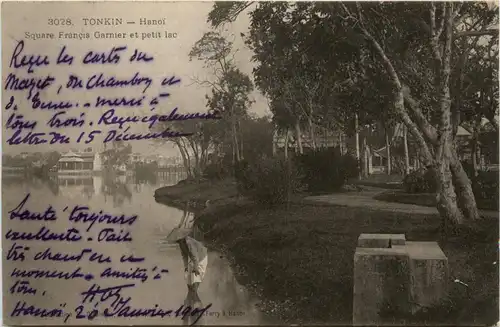 3028. TONKIN — Hanoï
Square Françis Garnier et petit lac
Reçu les cartes du
Mazet, du Chambon et
d'
merci à
tous trois. Reçu également
lettre du 15 Décembre.
Santé toujours
excellente. Fait
très chaud en ce
moment. Amitiés à
tous.
Hanoï, 26 Janvier